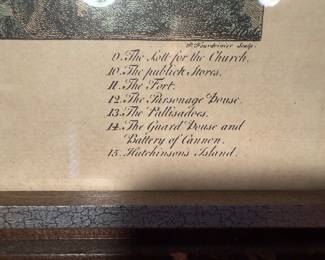 P. Fourdrinier Sculp.
9. The Lott for the Church.
10. The publick Stores.
11. The Fort.
12. The Parsonage House.
13. The Pallisadoes.
14. The Guard House and
Battery of Cannon.
15. Hutchinsons Island.